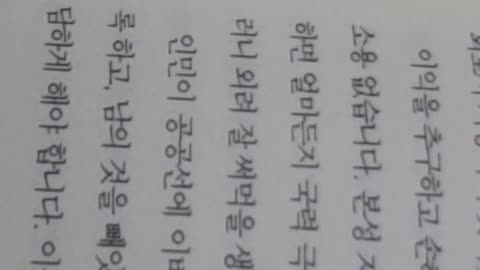 이익을 추구하고
소용 없습니다. 본성
하면 얼마든지 국력
러니 외려 잘 써먹을 생
인민이 공공선에 이바
목하고, 남의 것을 빼앗
담하게 해야 합니다. 이